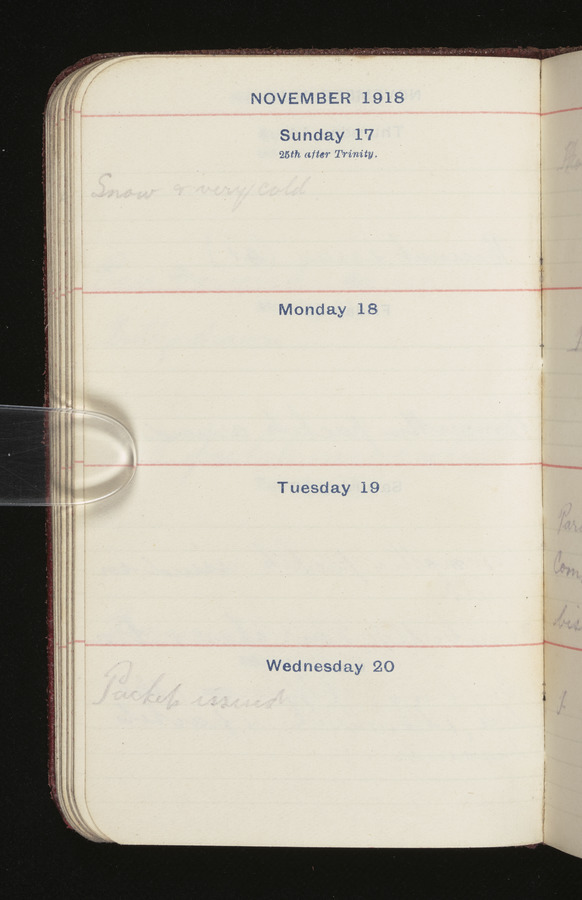 NOVEMBER 1918
Sunday 17
25th after Trinity.
Snow & very cold
Monday 18
Tuesday 19
Wednesday 20
Packets issued